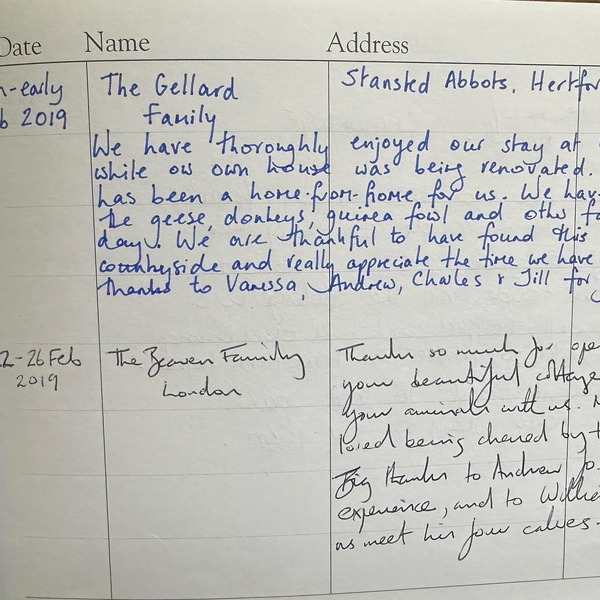 Date Name Address
n-early The Gellard Stansted Abbots, Hertfor
b 2019 Family
We have thoroughly enjoyed our stay at
while our own house was being renovated.
has been a home-from-home for us. We hav
the geese, donkeys, guinea fowl and other fa
day. We are thankful to have found this
countryside and really appreciate the time we have
thanks to Vanessa, Andrew, Charles & Jill for
2-26 Feb The Beaven Family Thanks so much for ope
2019 London your beautiful cottage
your animals with us.
loved being chased by t
Big thanks to Andrew fo
experience, and to Willie
us meet his four calves.